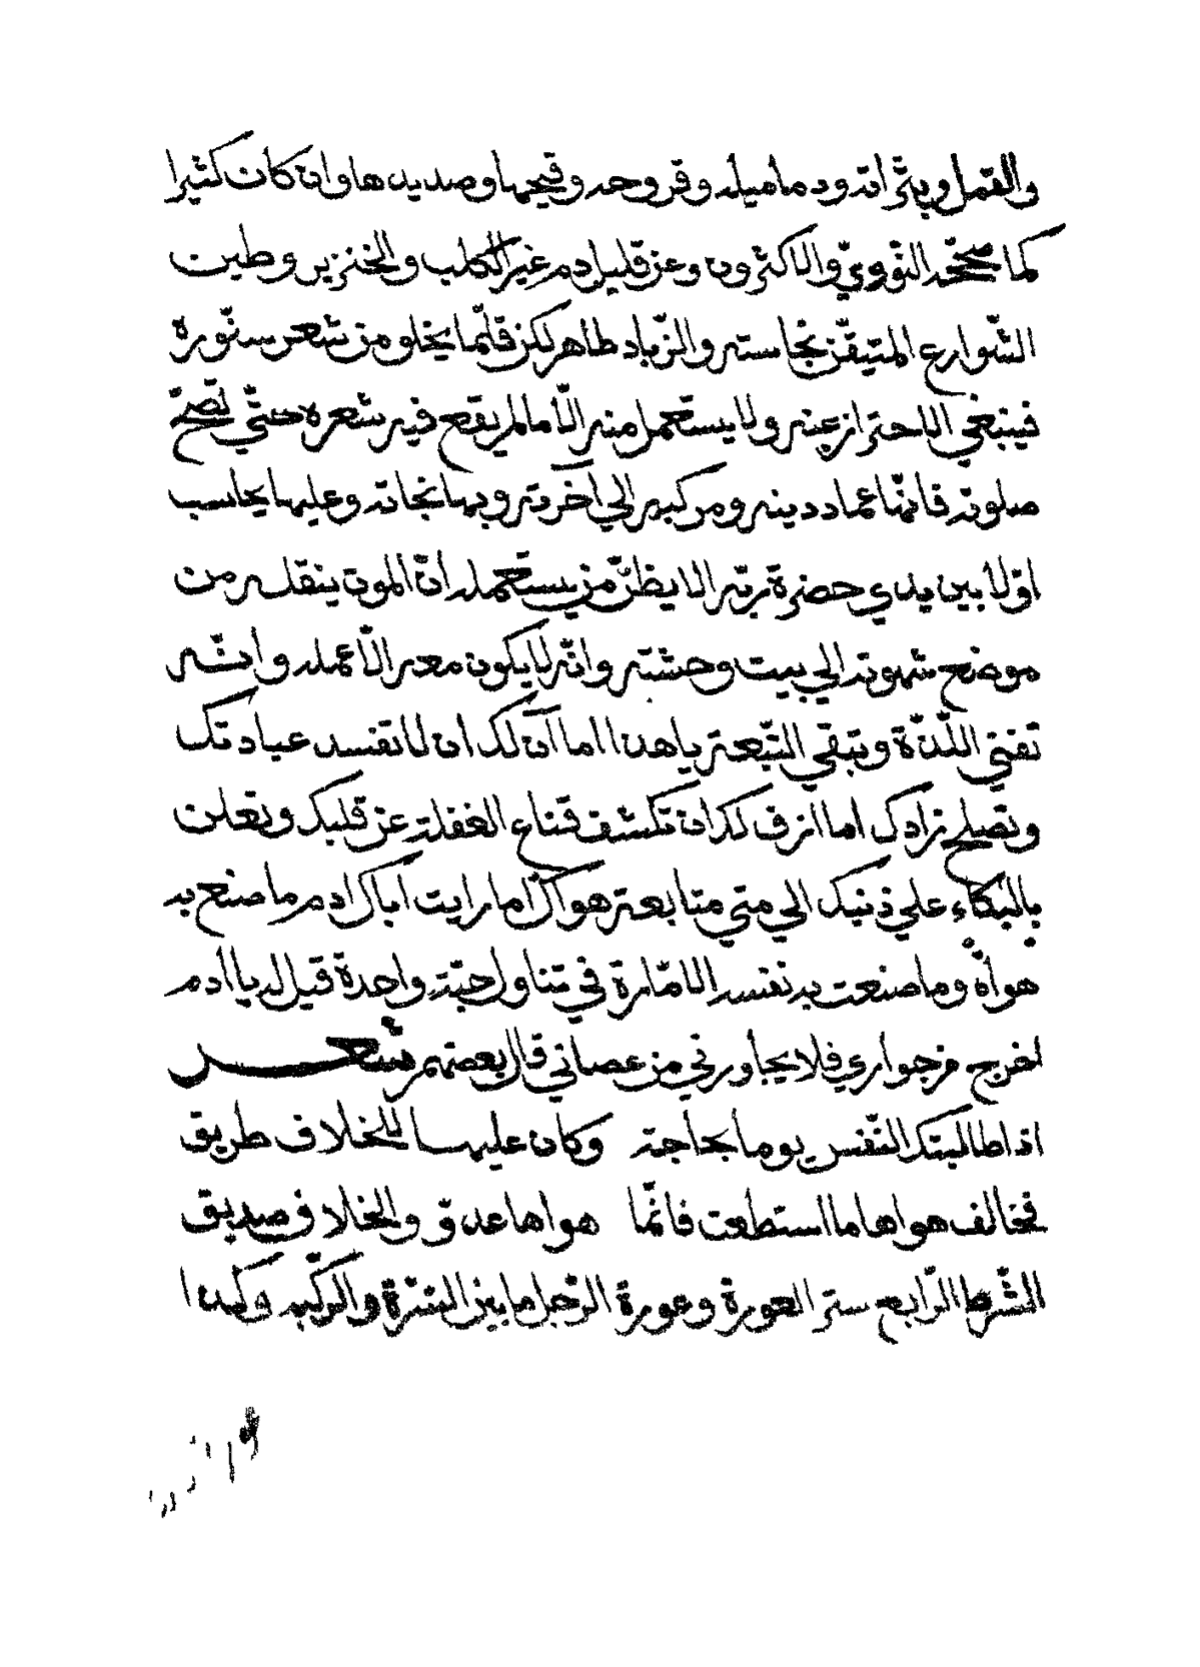 والقمل وبثراته ودماميله وقروحه وقيحها وصديدها وان كان كثيرا
كما صححه النّوويّ والاكثرون وعن قليل دم غير الكلب والخنزير وطين
الشّوارع المتيقّن نجاسته والزّباد طاهر لكن قلّما يخلو من شعر سنّورة
فينبغي الاحتراز عنه ولا يستعمل منه الّا ما لم يقع فيه شعره حتّي تصحّ
صلوته فانّها عماد دينه ومركبه الي آخرته وبها نجاته وعليها يحاسب
اوّلا بين يدي حضرة ربّه الا يظنّ من يستعمله انّ الموت ينقله من
موضع شهوته الي بيت وحشته وانّه لا يكون معه الّا عمله وانّه
تفني اللّذّة وتبقي التّبعة يا هذا اما آن لك ان لا تفسد عبادتك
وتصلح زادك اما ازف لك ان تكشف قناع الغفلة عن قلبك وتعلن
بالبكاء علي ذنبك الي متي متابعة هواك اما رايت اباك ادم ما صنع به
هواه وما صنعت به نفسه الامّارة في تناول حبّة واحدة قيل له يا ادم
اخرج من جواري فلا يجاورني من عصاني قال بعضهم شعر
اذا طالبتك النّفس يوما بحاجة وكان عليها للخلاف طريق
فخالف هواها ما استطعت فانّما هواها عدوّ والخلاف صديق
الشّرط الرّابع ستر العورة وعورة الرّجل ما بين السّرّة والرّكبة وكذا